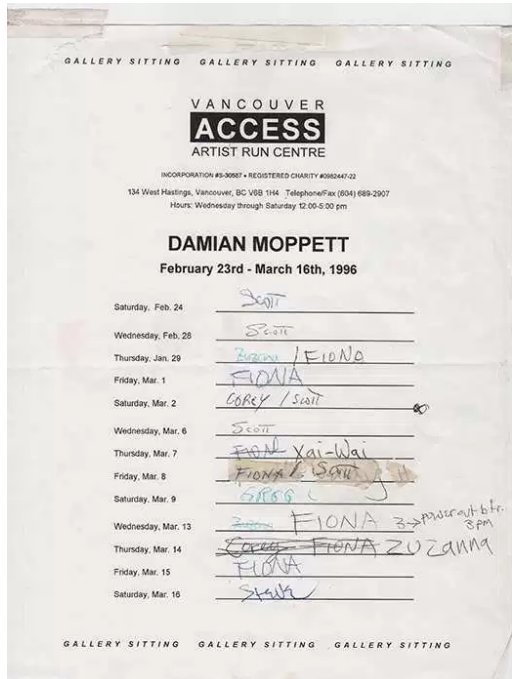 GALLERY SITTING GALLERY SITTING GALLERY SITTING
VANCOUVER
ACCESS
ARTIST RUN CENTRE
INCORPORATION #S-30687 • REGISTERED CHARITY #0982447-22
134 West Hastings, Vancouver, BC V6B 1H4 Telephone/Fax (604) 689-2907
Hours: Wednesday through Saturday 12:00-5:00 pm
DAMIAN MOPPETT
February 23rd - March 16th, 1996
Saturday, Feb. 24 Scott
Wednesday, Feb. 28 Scott
Thursday, Jan. 29 / FIONA
Friday, Mar. 1 FIONA
Saturday, Mar. 2 COREY / Scott
Wednesday, Mar. 6 Scott
Thursday, Mar. 7 Xai-Wai
Friday, Mar. 8 FIONA / Scott
Saturday, Mar. 9 GREG
Wednesday, Mar. 13 FIONA 3→ power out bfr. 3pm
Thursday, Mar. 14 Corey FIONA ZUZanna
Friday, Mar. 15 FIONA
Saturday, Mar. 16 Steve
GALLERY SITTING GALLERY SITTING GALLERY SITTING